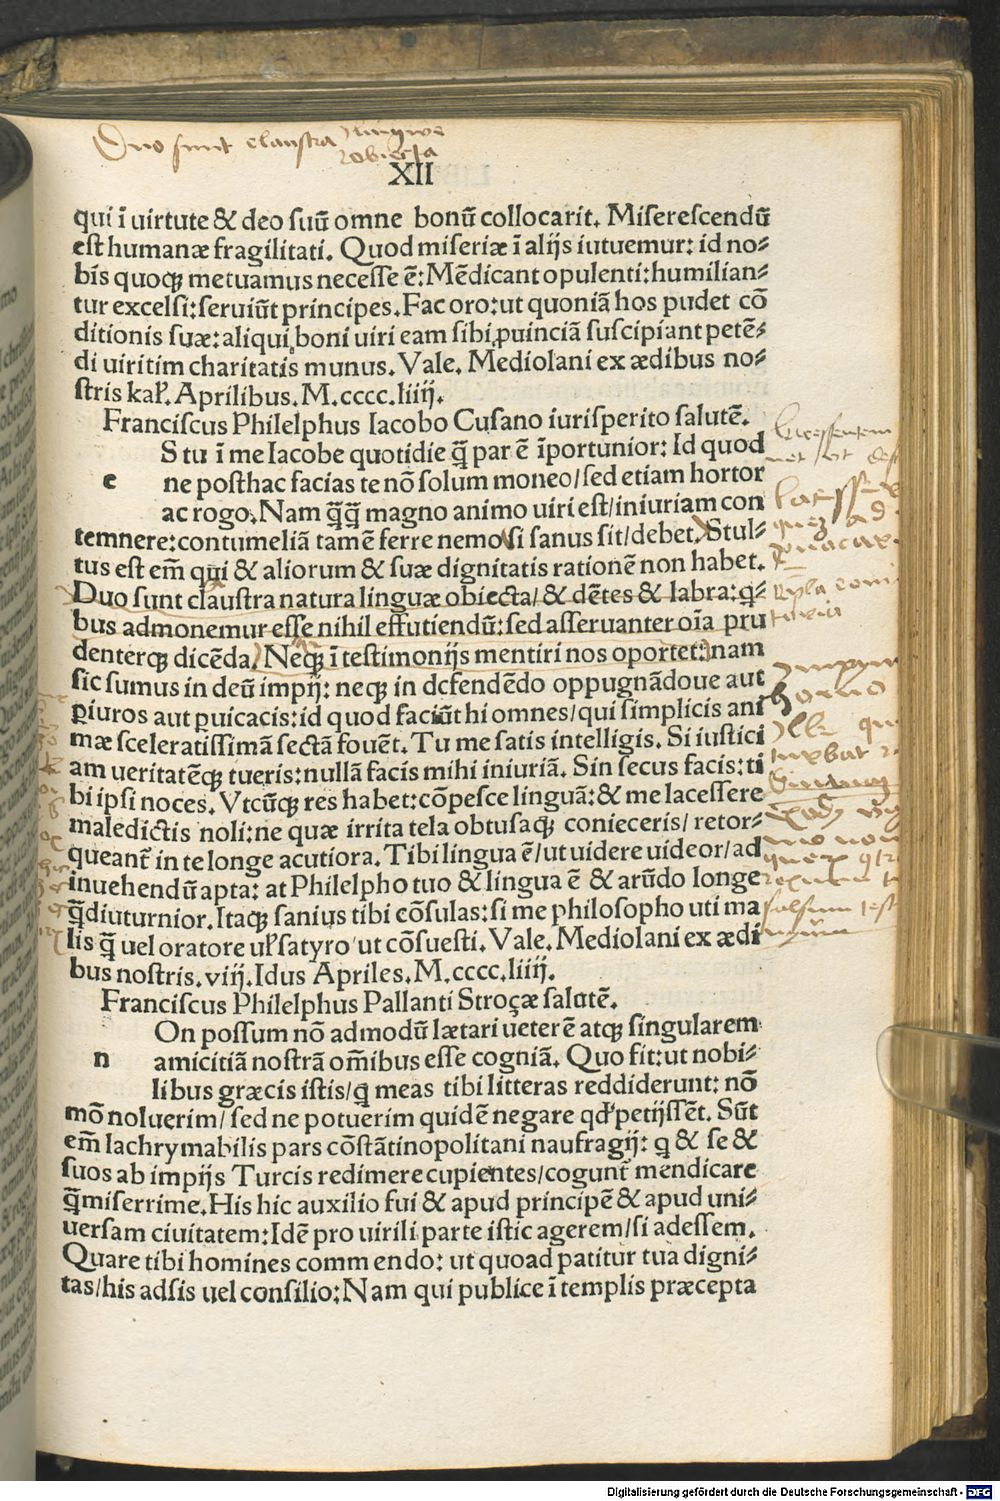 Duo sunt claustra lingwe
obiecta
XII
qui ī uirtute & deo suū omne bonū collocarit. Miserescendū
est humanæ fragilitati. Quod miseriæ ī alijs iutuemur: id no-
bis quoqȝ metuamus necesse ē: Mēdicant opulenti: humilian-
tur excelsi: seruiūt principes. Fac oro: ut quoniā hos pudet cō
ditionis suæ: aliqui boni uiri eam sibi ꝓuinciā suscipiant petē-
di uiritim charitatis munus. Vale. Mediolani ex ædibus no-
stris kal̕. Aprilibus. M.cccc.liiij.
Franciscus Philelphus Iacobo Cusano iurisperito salutē.
S tu ī me Iacobe quotidie q̄ par ē īportunior: Id quod
e ne posthac facias te nō solum moneo/ sed etiam hortor
ac rogo. Nam q̄q̄ magno animo uiri est/ iniuriam con
temnere: contumeliā tamē ferre nemo si sanus sit/ debet. Stul-
tus est em̄ qui & aliorum & suæ dignitatis rationē non habet.
Duo sunt claustra natura linguæ obiecta/ & dētes & labra: q̄-
bus admonemur esse nihil effutiendū: sed asseruanter oīa pru
denterqȝ dicēda. Neqȝ ī testimonijs mentiri nos oportet: nam
sic sumus in deū impij: neqȝ in dcfendēdo oppugnādoue aut
ꝑiuros aut ꝑuicacis: id quod faciūt hi omnes/ qui simplicis ani
mæ sceleratissimā sectā fouēt. Tu me satis intelligis. Si iustici
am ueritatēqȝ tueris: nullā facis mihi iniuriā. Sin secus facis: ti
bi ipsi noces. Vtcūqȝ res habet: cōpesce linguā: & me lacessere
maledictis noli: ne quæ irrita tela obtusaqȝ conieceris/ retor-
queant̄ in te longe acutiora. Tibi lingua ē/ ut uidere uideor/ ad
inuehendū apta: at Philelpho tuo & lingua ē & arūdo longe
q̄ diuturnior. Itaqȝ sanius tibi cōsulas: si me philosopho uti ma
lis q̄ uel oratore ul̕ satyro/ ut cōsuesti. Vale. Mediolani ex ædi
bus nostris. viij. Idus Apriles. M.cccc.liiij.
Franciscus Philelphus Pallanti Stroçæ salutē.
On possum nō admodū lætari ueterē atqȝ singularem
n amicitiā nostrā om̄ibus esse cogniā. Quo fit: ut nobi-
libus græcis istis/ q̄ meas tibi litteras reddiderunt: nō
mō noluerim/ sed ne potuerim quidē negare qd̕ petijssēt. Sūt
em̄ lachrymabilis pars cōstātinopolitani naufragij: q̄ & se &
suos ab impijs Turcis redimere cupientes/ cogunt̄ mendicare
q̄ miserrime. His hic auxilio fui & apud principē & apud uni-
uersam ciuitatem: Idē pro uirili parte istic agerem/ si adessem.
Quare tibi homines comm endo: ut quoad patitur tua digni-
tas/ his adsis uel consilio: Nam qui publice ī templis præcepta
Digitalisierung gefördert durch die Deutsche Forschungsgemeinschaft - DFG